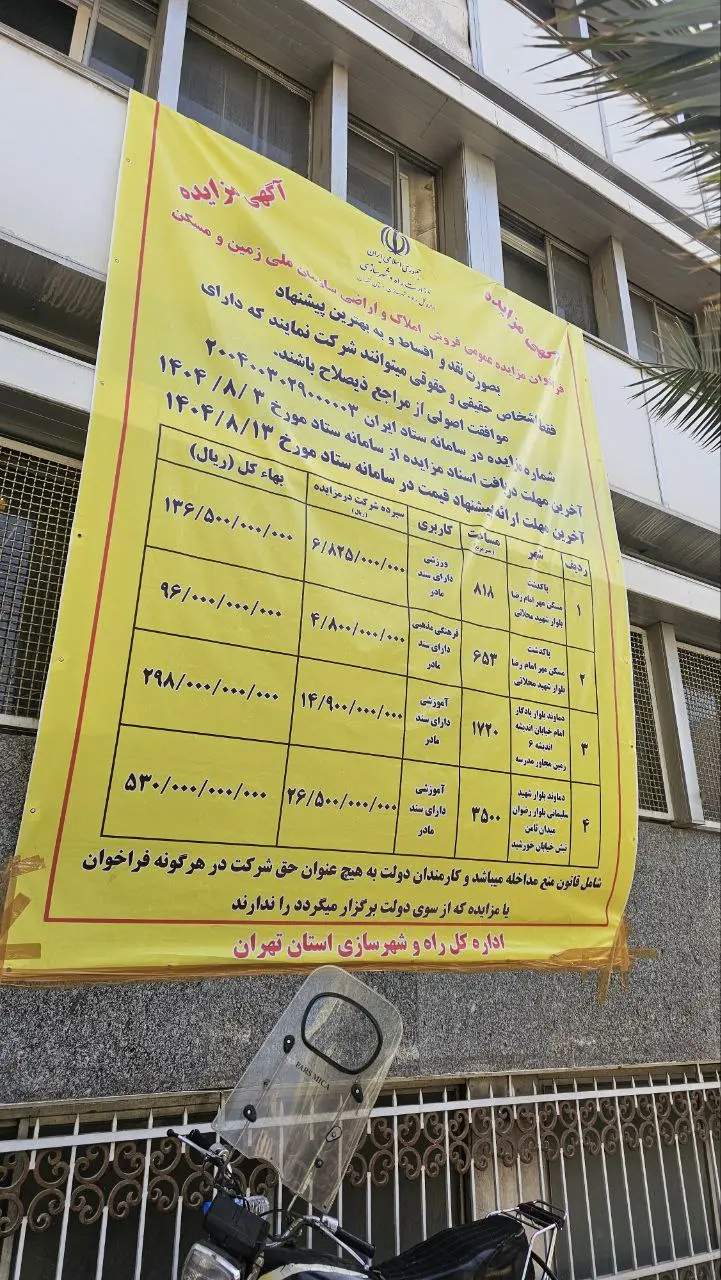 آگهی مزایده
جمهوری اسلامی ایران
وزارت راه و شهرسازی
آگهی مزایده
فراخوان مزایده عمومی فروش املاک و اراضی سازمان ملی زمین و مسکن
بصورت نقد و اقساط و به بهترین پیشنهاد
فقط اشخاص حقیقی و حقوقی میتوانند شرکت نمایند که دارای
موافقت اصولی از مراجع ذیصلاح باشند.
شماره مزایده در سامانه ستاد ایران ۲۰۰۴۰۰۳۰۲۹۰۰۰۰۰۳
آخرین مهلت دریافت اسناد مزایده از سامانه ستاد مورخ ۱۴۰۴/۸/۳
آخرین مهلت ارائه پیشنهاد قیمت در سامانه ستاد مورخ ۱۴۰۴/۸/۱۳
ردیف شهر مساحت (متر مربع) کاربری سپرده شرکت در مزایده (ریال) بهاء کل (ریال)
۱ پاکدشت مسکن مهر امام رضا بلوار شهید محلاتی ۸۱۸ ورزشی دارای سند مادر ۶/۸۲۵/۰۰۰/۰۰۰ ۱۳۶/۵۰۰/۰۰۰/۰۰۰
۲ پاکدشت مسکن مهر امام رضا بلوار شهید محلاتی ۶۵۳ فرهنگی مذهبی دارای سند مادر ۴/۸۰۰/۰۰۰/۰۰۰ ۹۶/۰۰۰/۰۰۰/۰۰۰
۳ دماوند بلوار یادگار امام خیابان اندیشه اندیشه ۶ زمین مجاور مدرسه ۱۷۲۰ آموزشی دارای سند مادر ۱۴/۹۰۰/۰۰۰/۰۰۰ ۲۹۸/۰۰۰/۰۰۰/۰۰۰
۴ دماوند بلوار شهید سلیمانی بلوار رضوان میدان ثامن نبش خیابان خورشید ۳۵۰۰ آموزشی دارای سند مادر ۲۶/۵۰۰/۰۰۰/۰۰۰ ۵۳۰/۰۰۰/۰۰۰/۰۰۰
شامل قانون منع مداخله میباشد و کارمندان دولت به هیچ عنوان حق شرکت در هرگونه فراخوان
یا مزایده که از سوی دولت برگزار میگردد را ندارند
اداره کل راه و شهرسازی استان تهران
PARS MICA